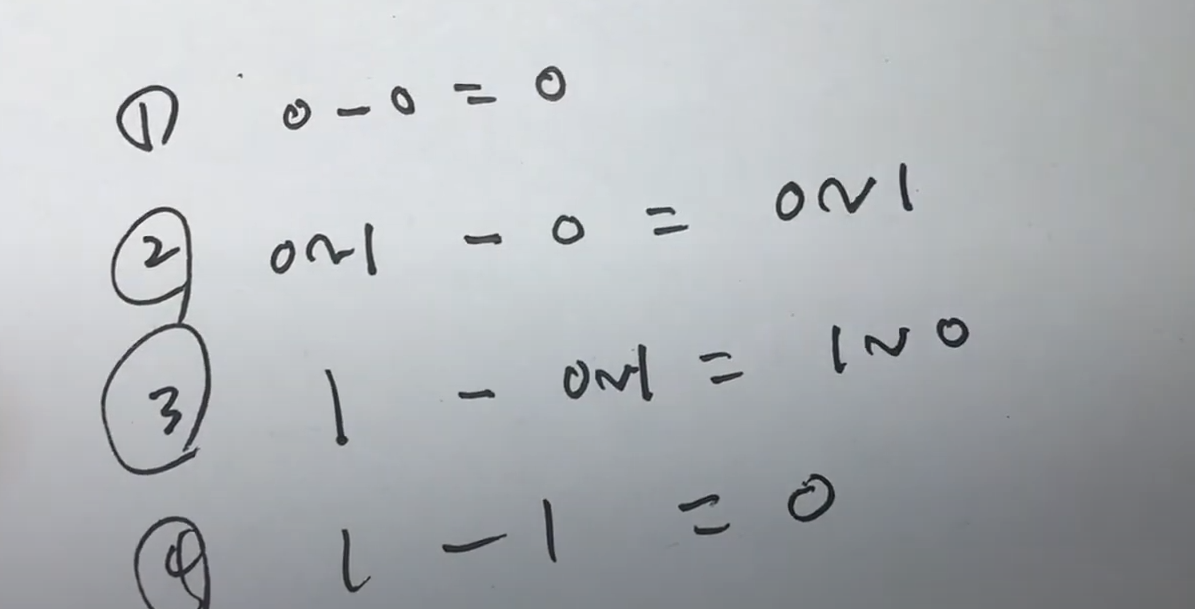 ① 0 - 0 = 0
② 0~1 - 0 = 0~1
③ 1 - 0~1 = 1~0
④ 1 - 1 = 0